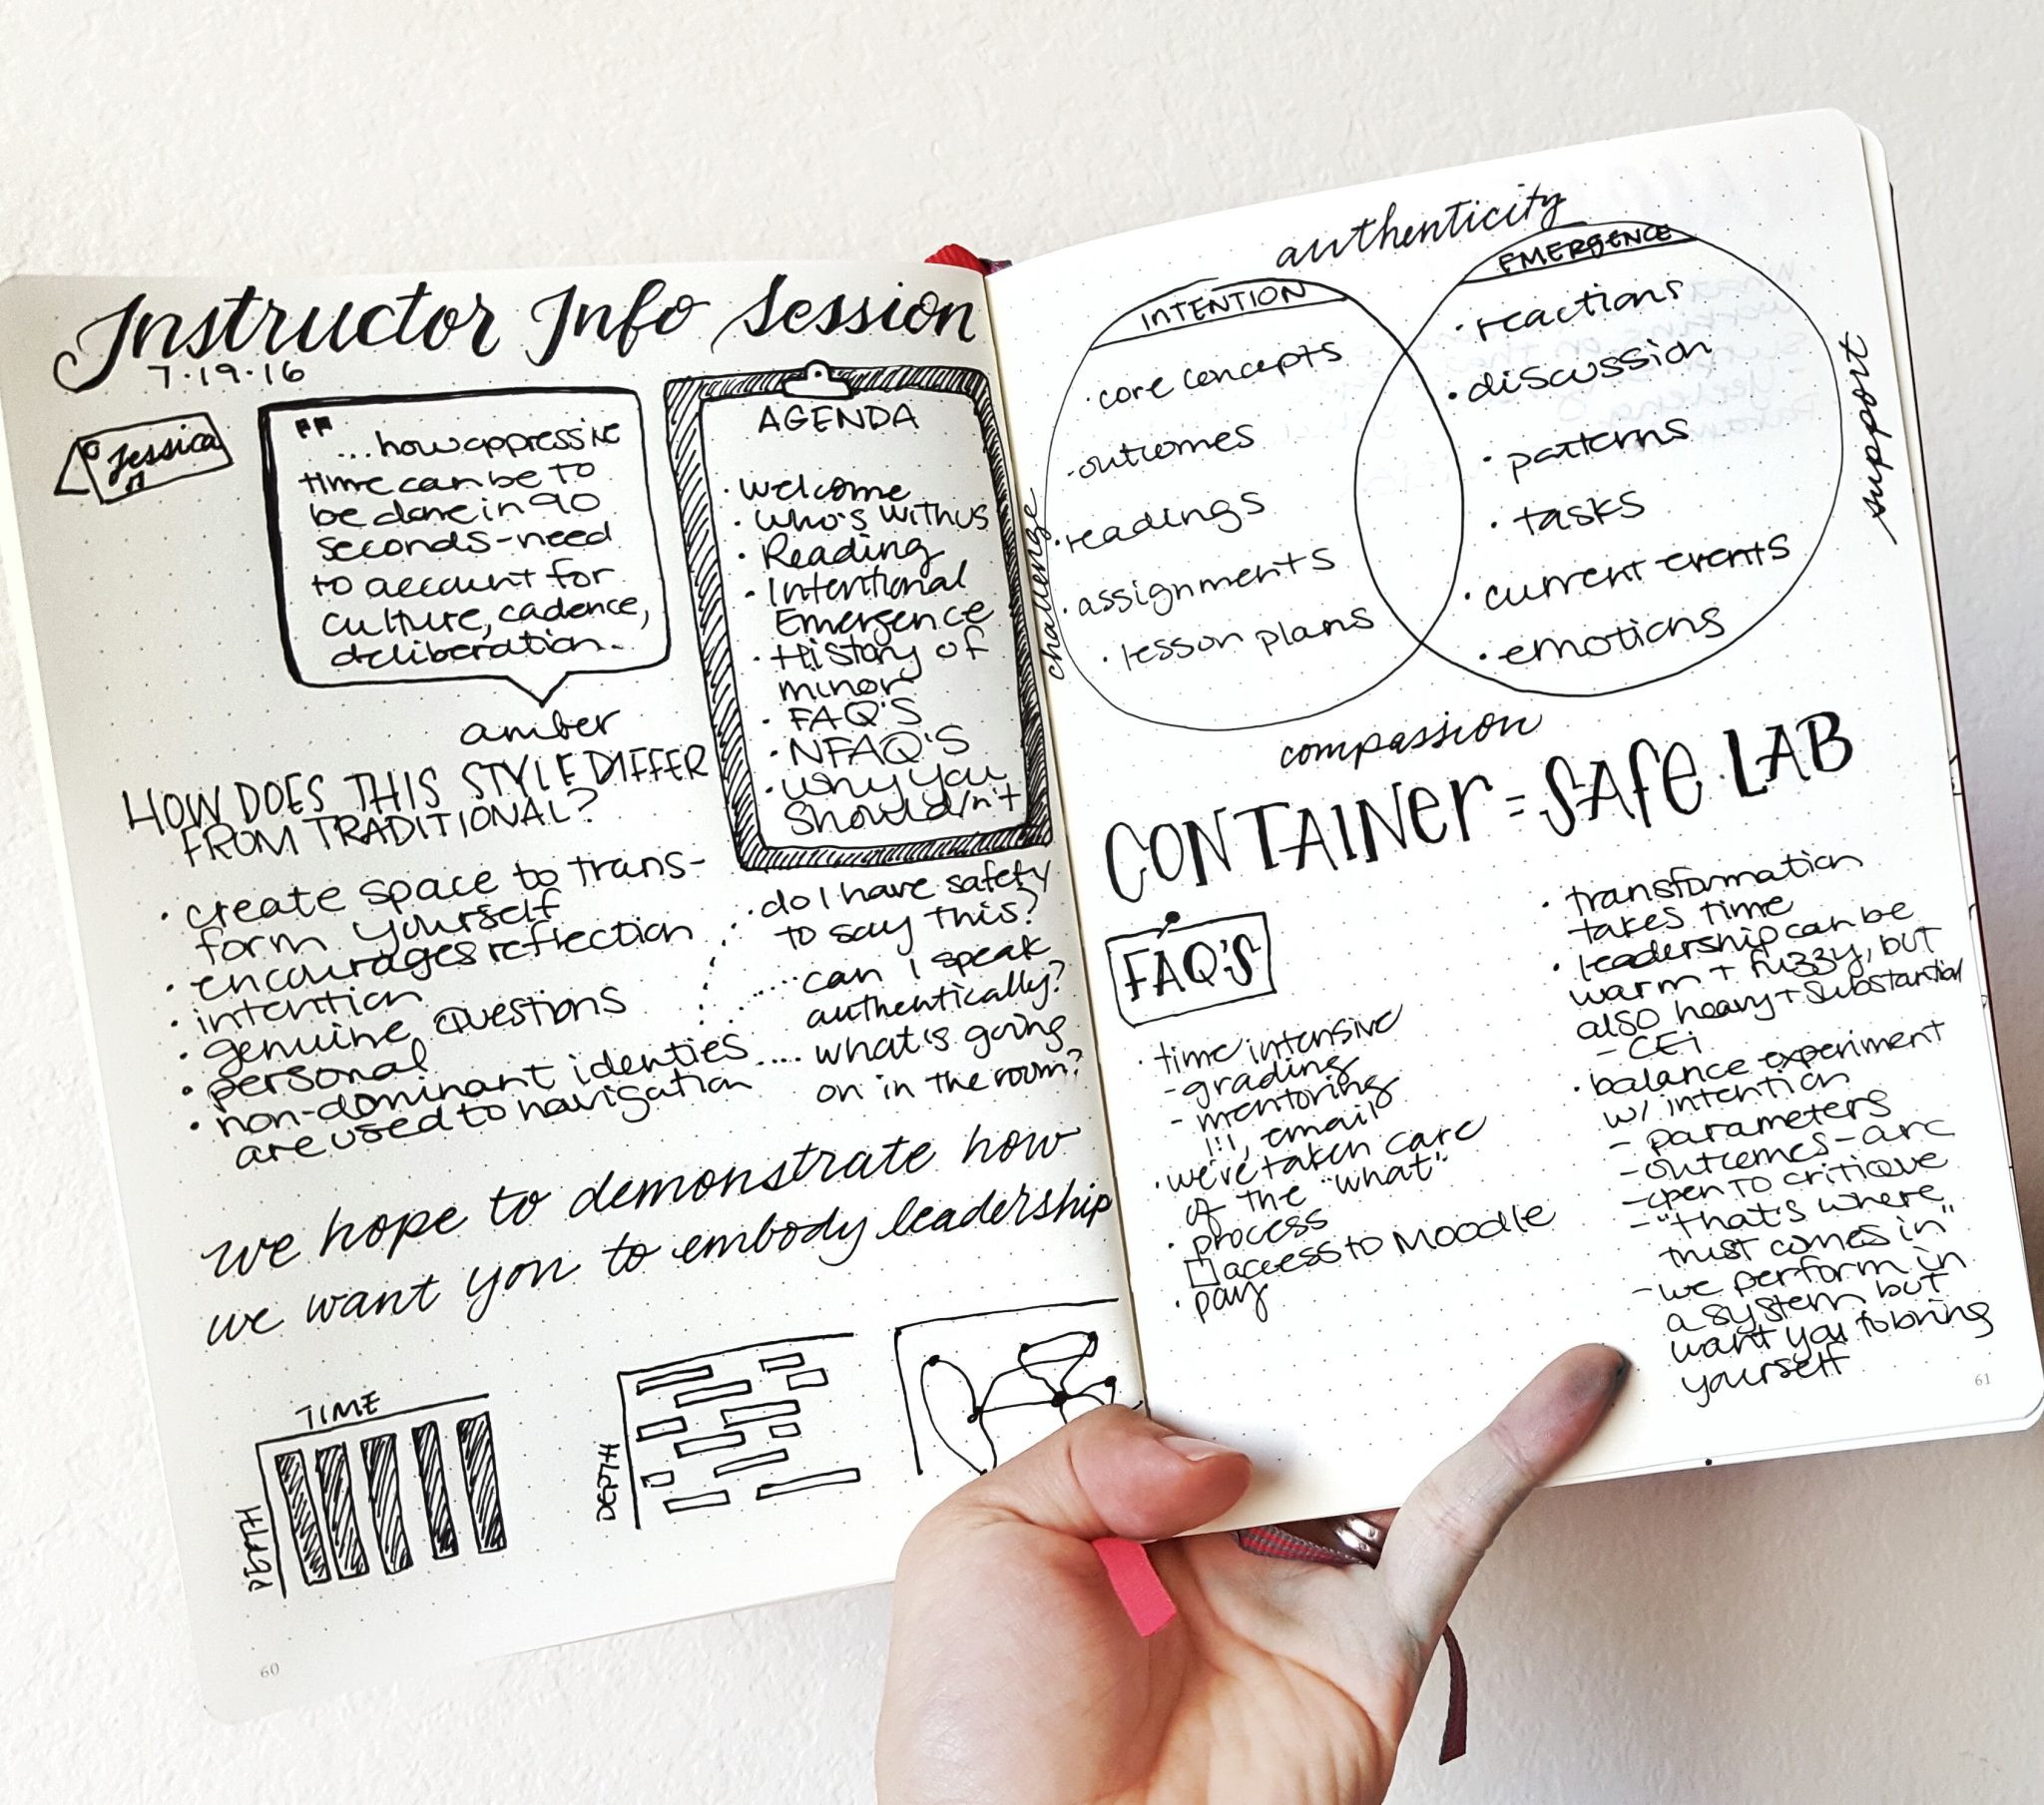 Instructor Info Session
7.19.16
Jessica
"...how oppressive
time can be to
be done in 90
seconds-need
to account for
culture, cadence,
deliberation..
amber
AGENDA
· Welcome
· Who's with us
· Reading
· Intentional
Emergence
· History of
minor
· FAQ'S
· NFAQ'S
· Why you
should/n't
HOW DOES THIS STYLE DIFFER
FROM TRADITIONAL?
· create space to trans-
form yourself
· encourages reflection
· intention
· genuine questions
· personal
· non-dominant identies
are used to navigation
· do I have safety
to say this?
.... can I speak
authentically?
.... what's going
on in the room?
we hope to demonstrate how
we want you to embody leadership
TIME
DEPTH
DEPTH
60
authenticity
challenge
support
compassion
INTENTION
· core concepts
· outcomes
· readings
· assignments
· lesson plans
EMERGENCE
· reactions
· discussion
· patterns
· tasks
· current events
· emotions
CONTAINER = SAFE LAB
FAQ'S
· time intensive
- grading
- mentoring
1:1, email
· we've taken care
of the "what"
· process
access to Moodle
· pay
· transformation
takes time
· leadership can be
warm + fuzzy, but
also heavy + substantial
- CEi
· balance experiment
w/ intention
- parameters
- outcomes - arc
- open to critique
- "that's where
trust comes in"
- we perform in
a system but
want you to bring
yourself
61